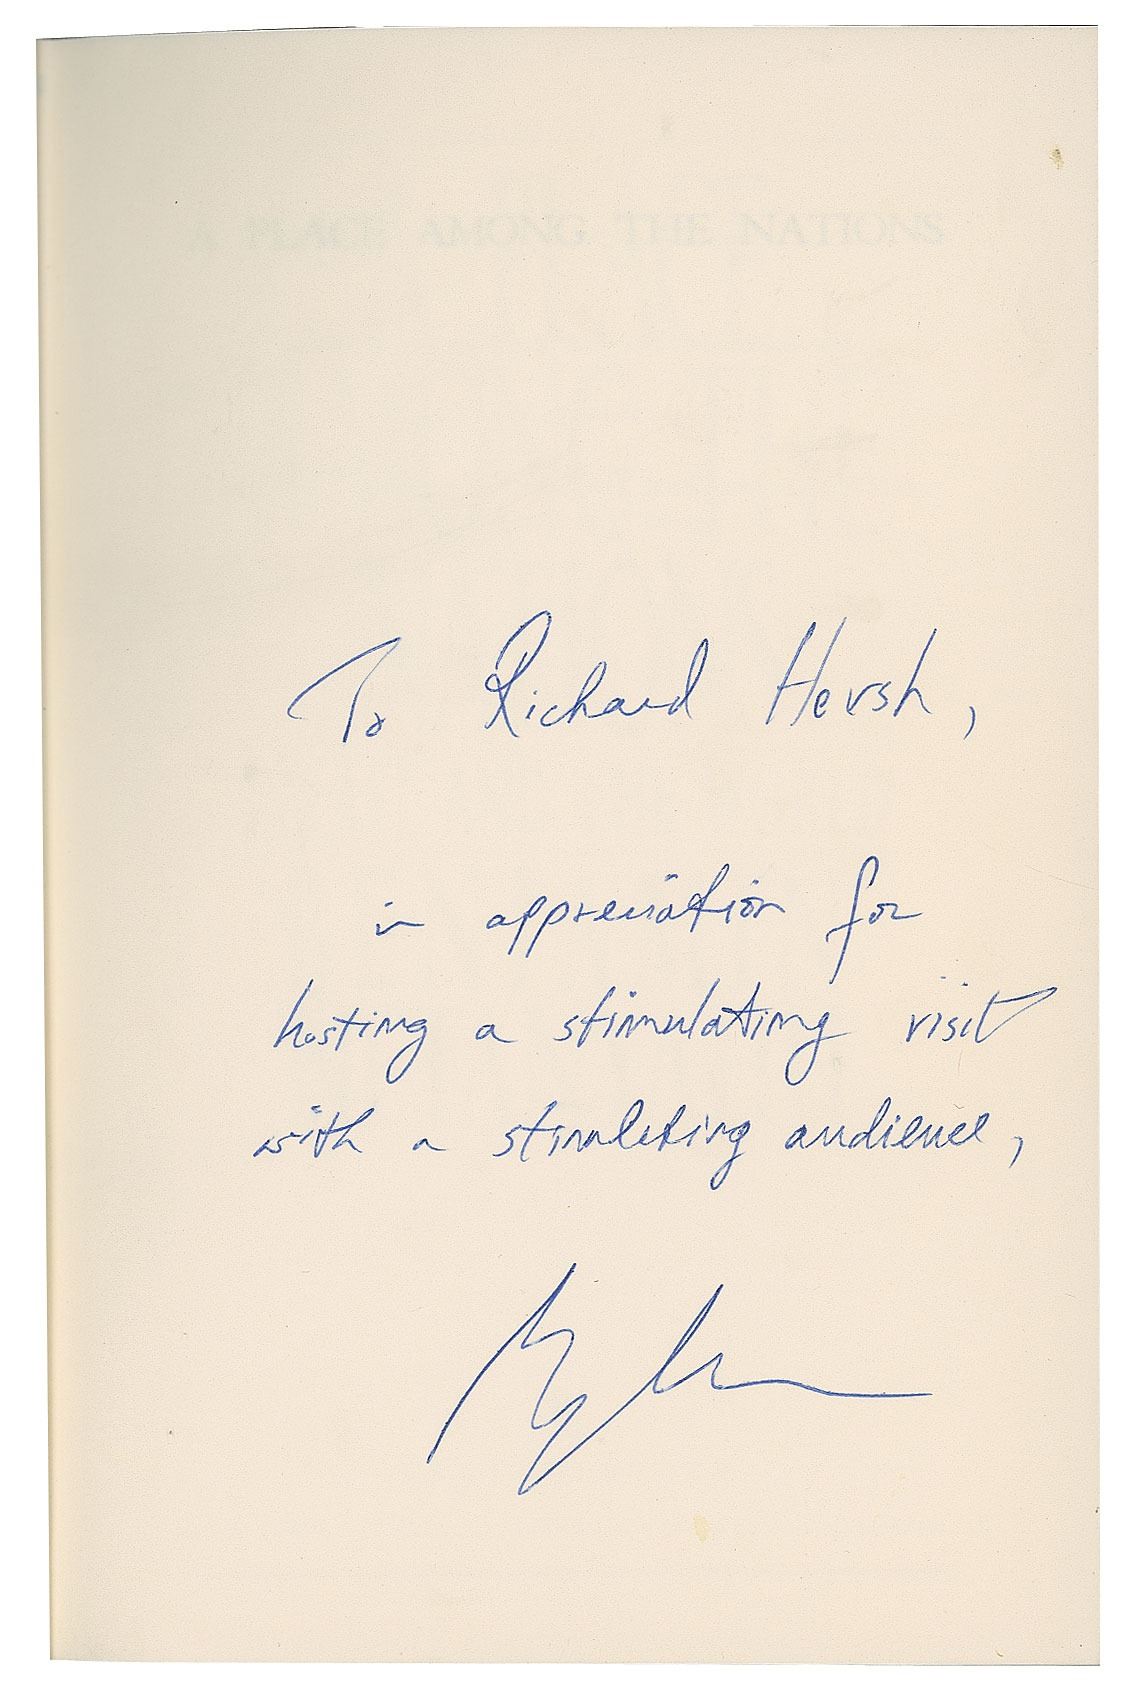 A PLACE AMONG THE NATIONS
To Richard Hersh,
in appreciation for
hosting a stimulating visit
with a stimulating audience,